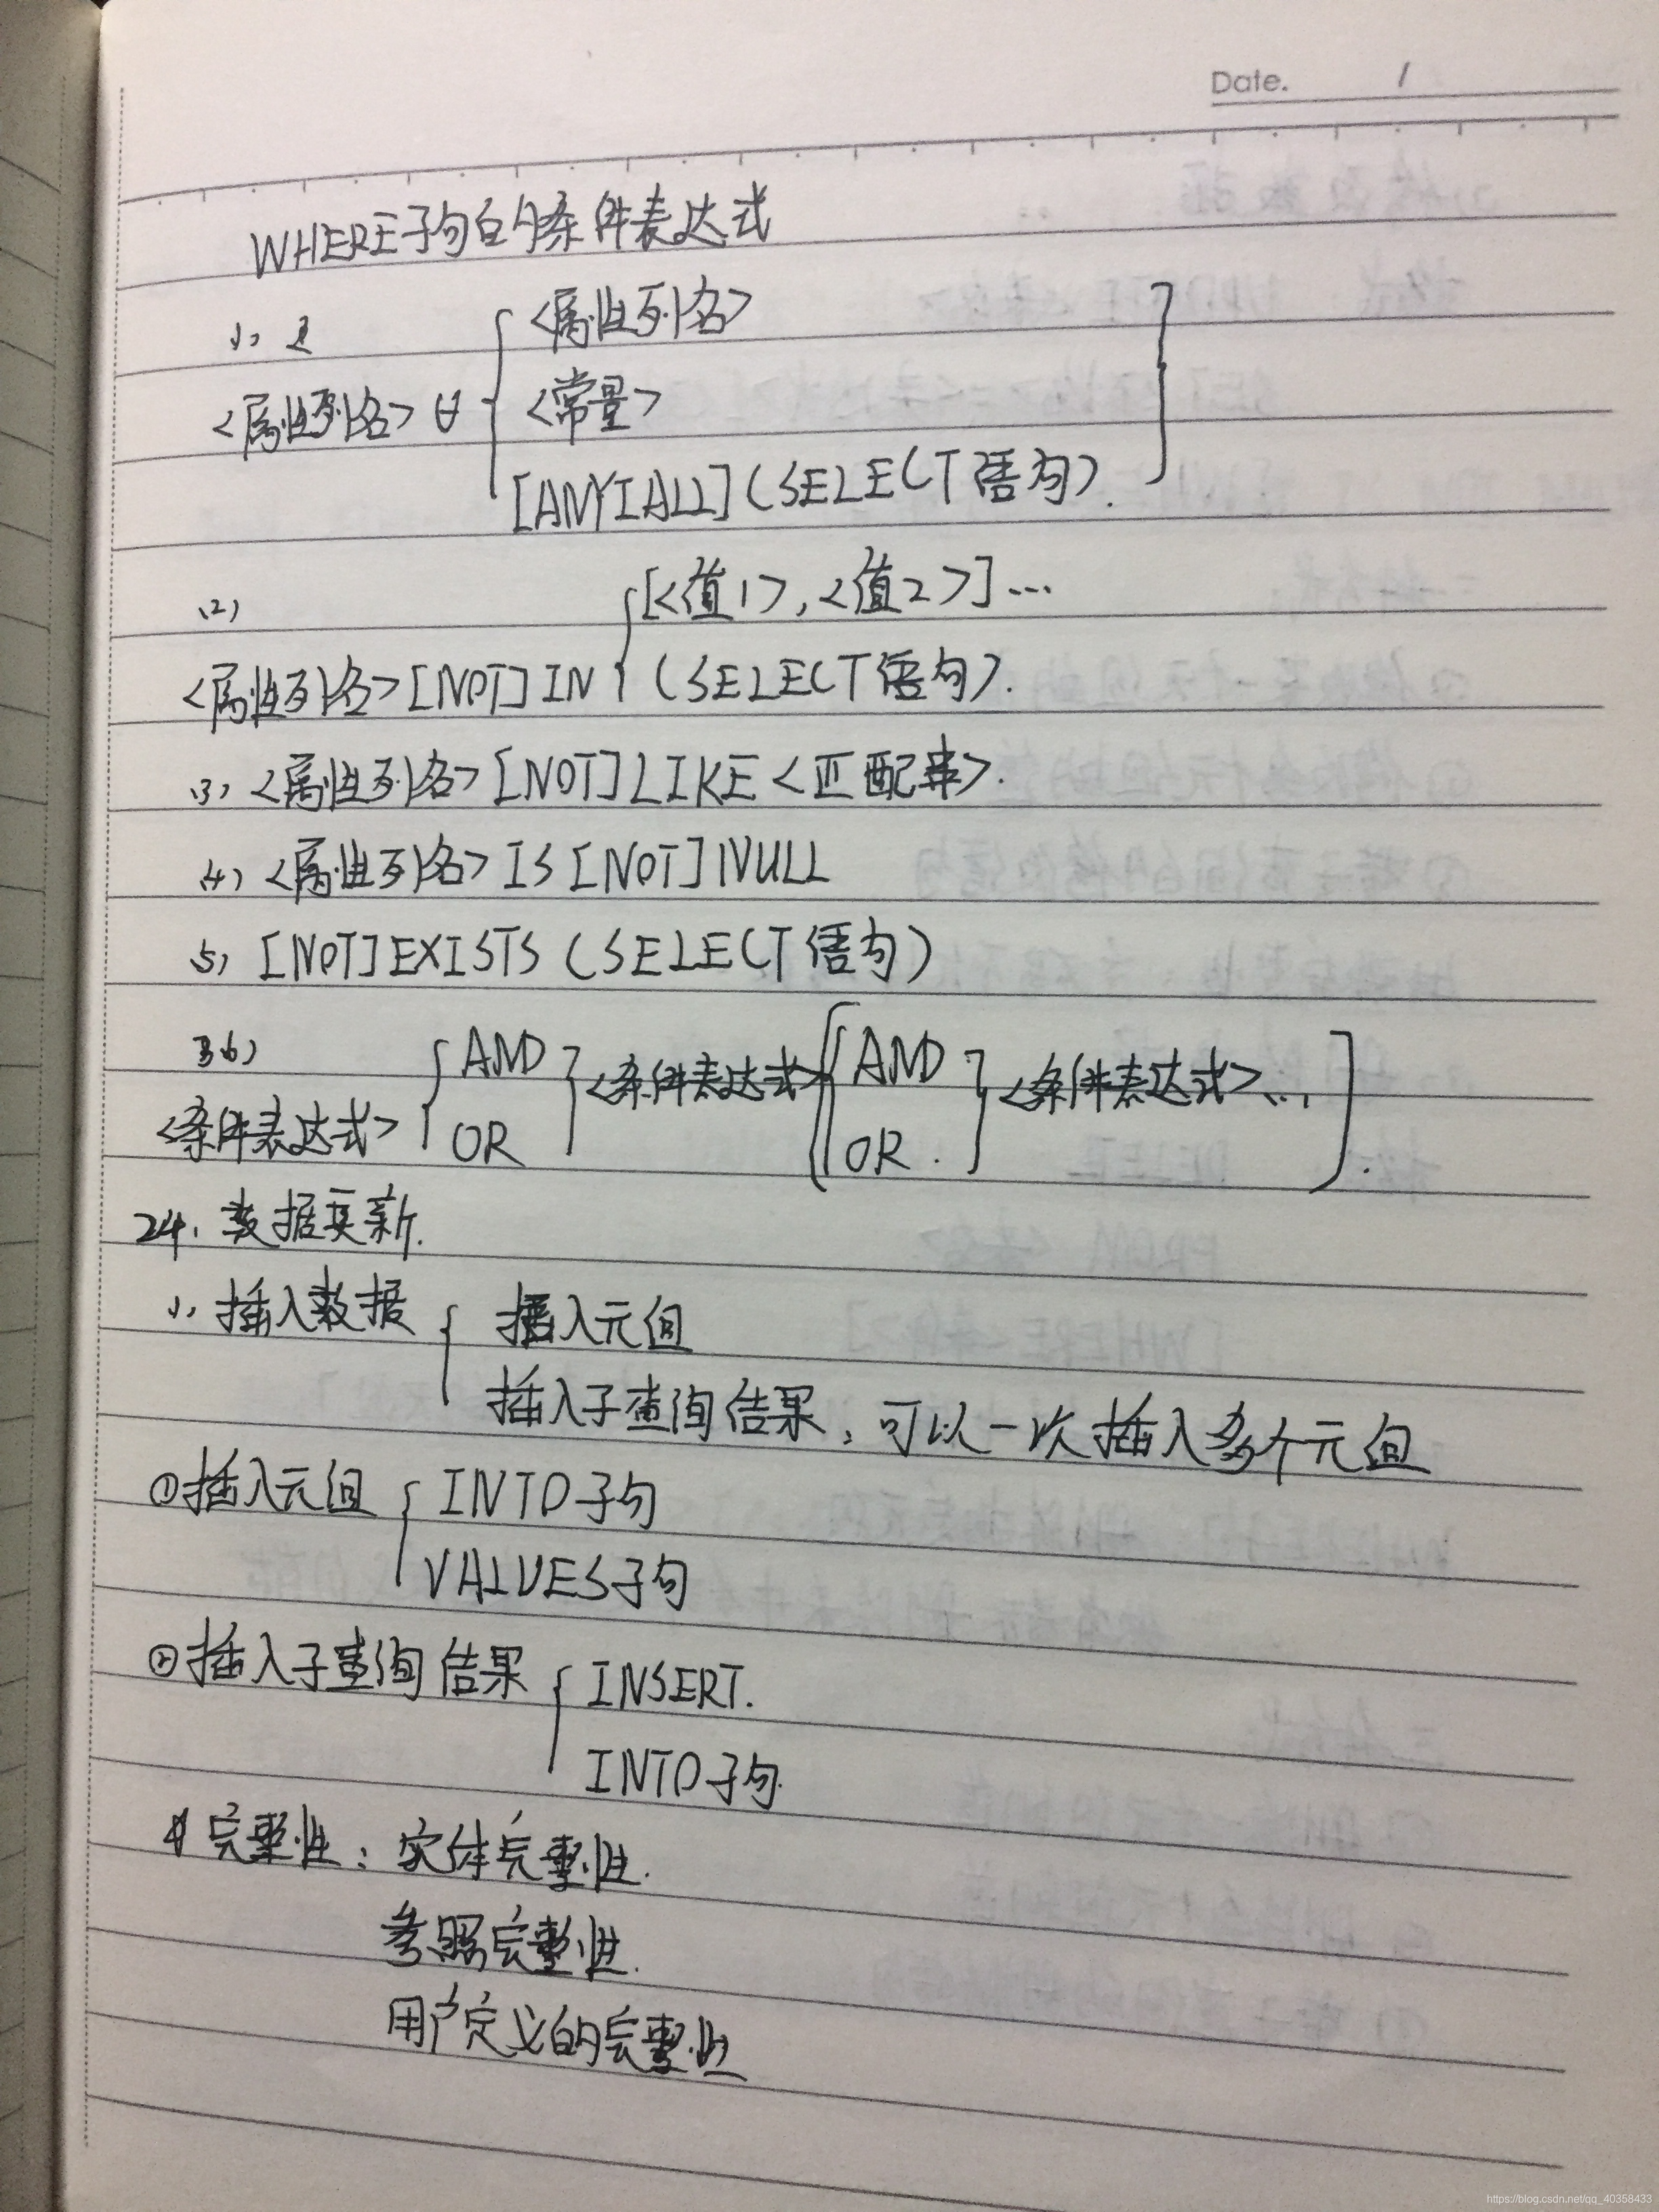 Date. /
WHERE子句的条件表达式
(1)
<属性列名> θ { <属性列名>
<常量>
[ANY|ALL](SELECT语句). ]
(2)
<属性列名>[NOT]IN { [<值1>,<值2>]…
(SELECT语句).
(3) <属性列名>[NOT]LIKE<匹配串>.
(4) <属性列名>IS[NOT]NULL
(5) [NOT]EXISTS(SELECT语句)
(6)
<条件表达式> { AND
OR } <条件表达式> [ { AND
OR. } <条件表达式>… ].
24. 数据更新.
(1) 插入数据 { 插入元组
插入子查询结果,可以一次插入多个元组
①插入元组 { INTO子句
VALUES子句
②插入子查询结果 { INSERT.
INTO子句.
完整性:实体完整性.
参照完整性.
用户定义的完整性
https://blog.csdn.net/qq_40358433